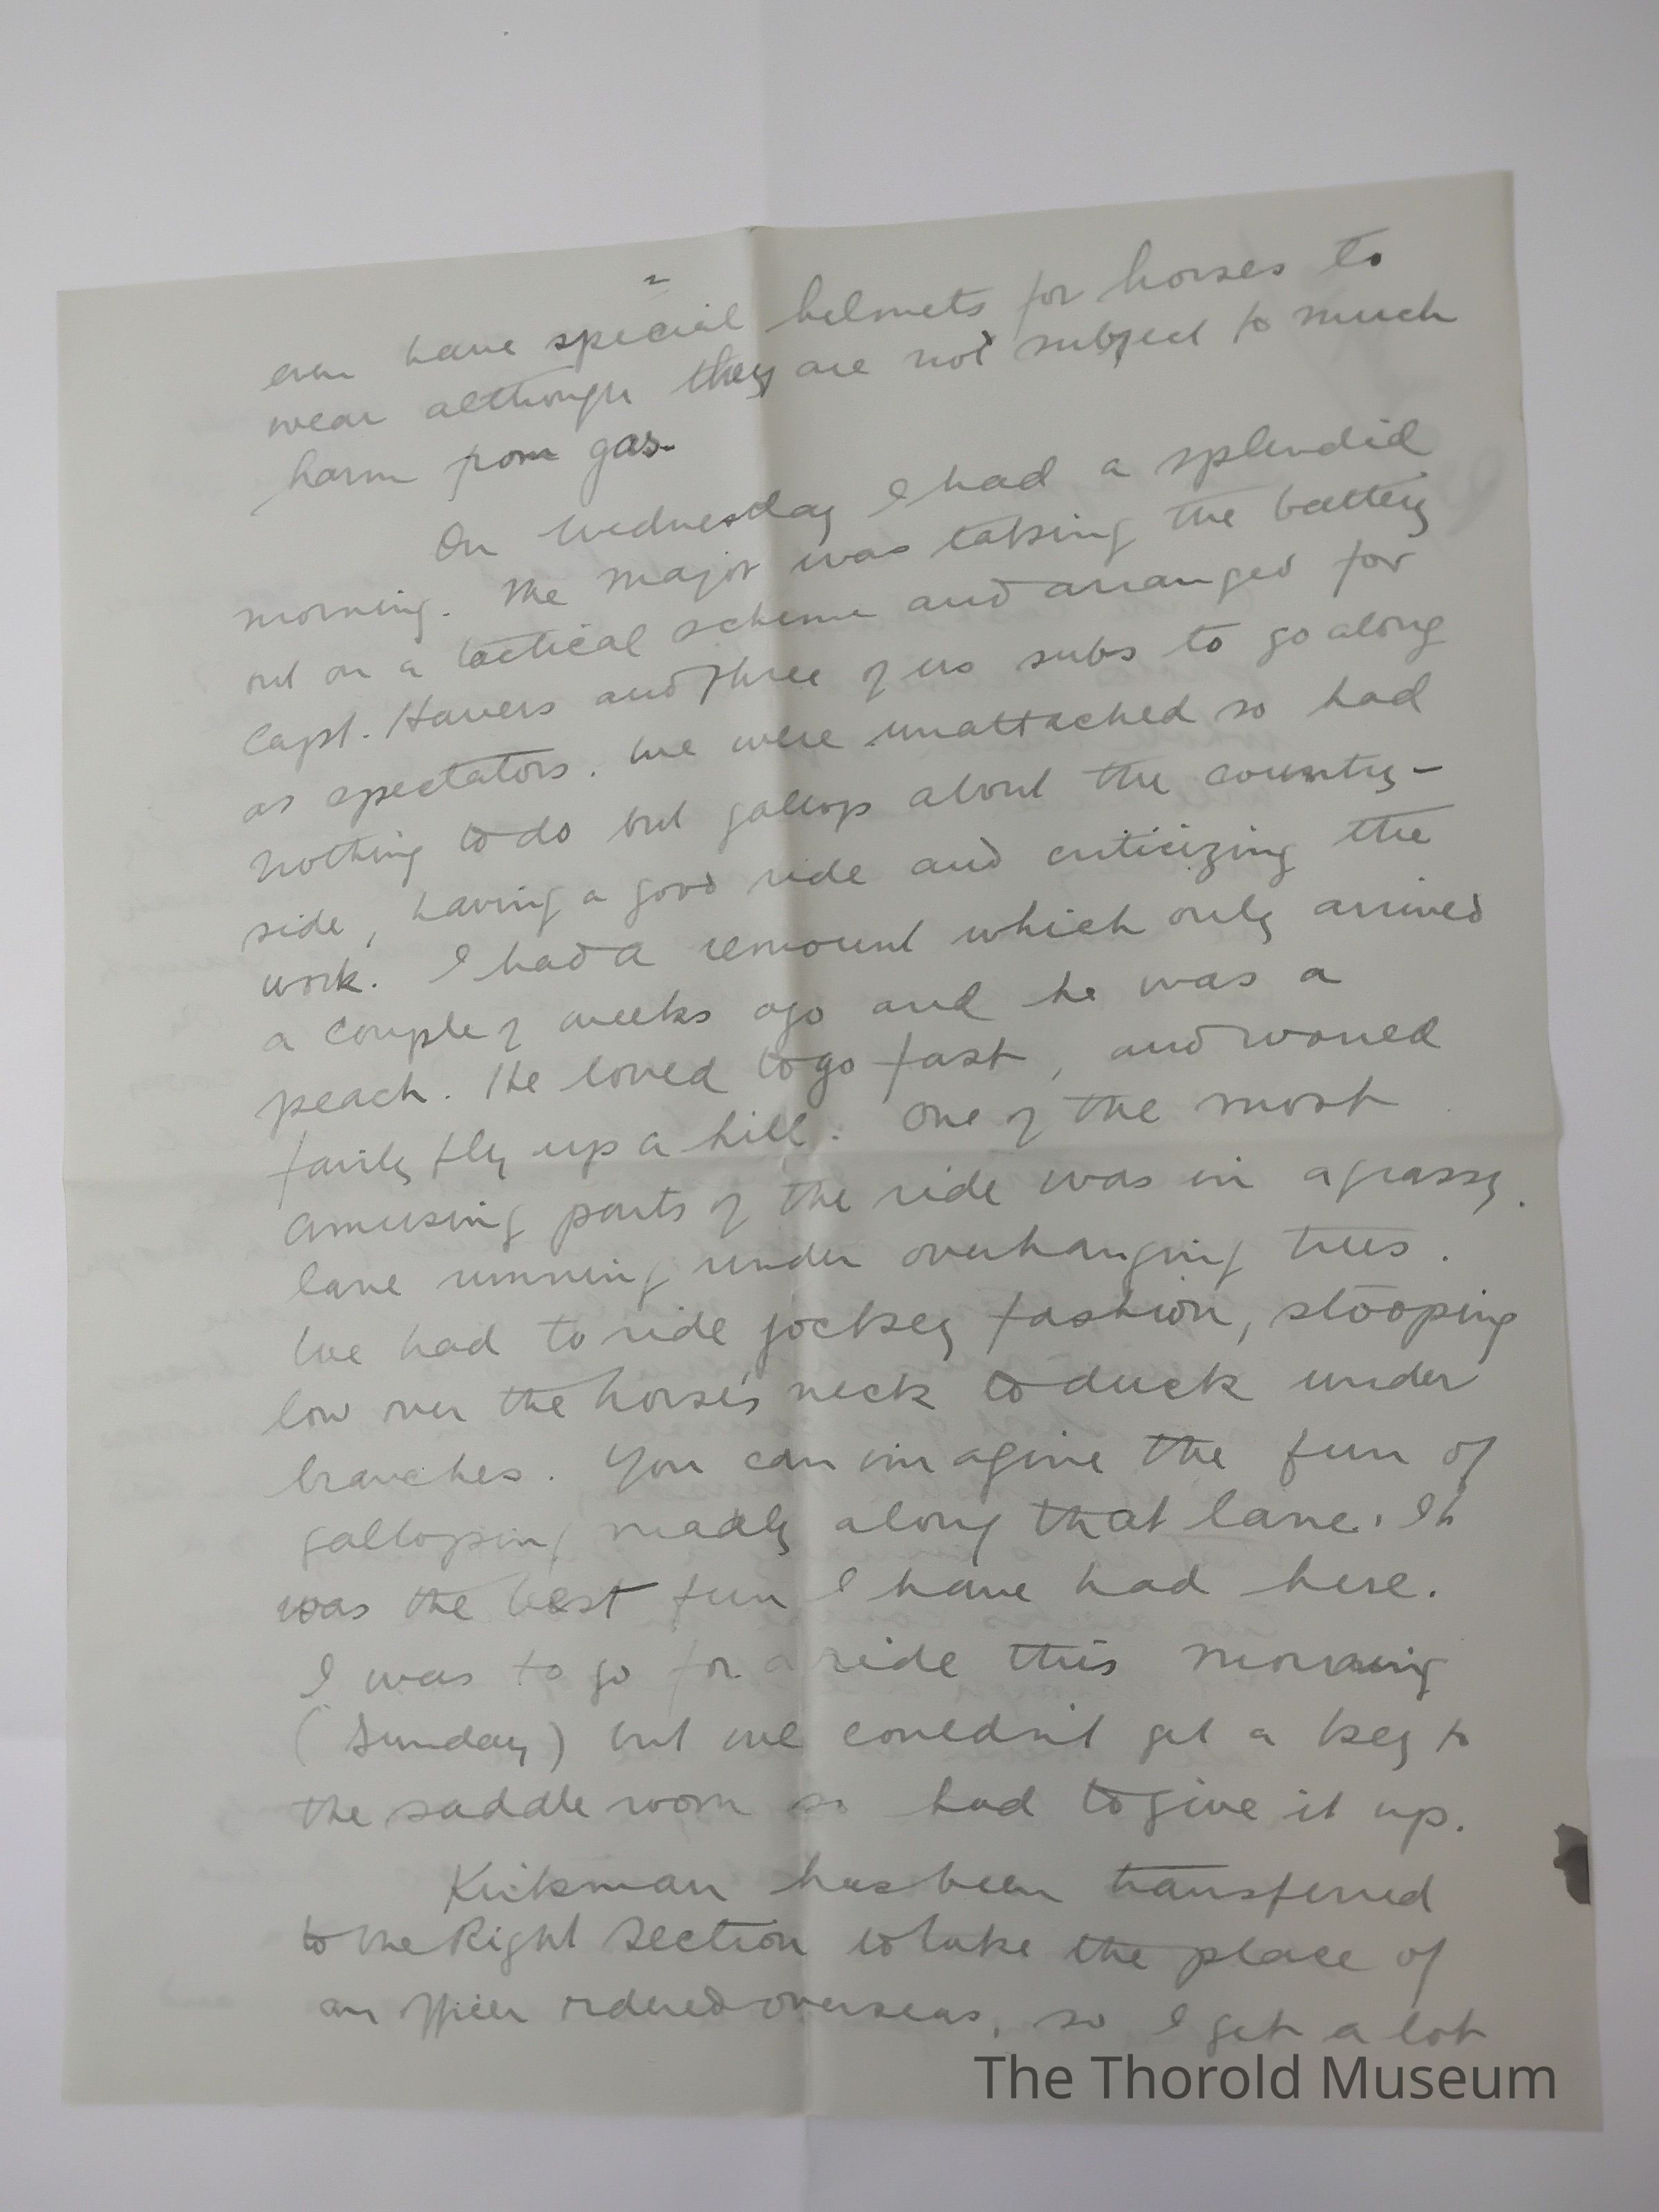 2
even have special helmets for horses to
wear although they are not subject to much
harm from gas.
On Wednesday I had a splendid
morning. The Major was taking the battery
out on a tactical scheme and arranged for
Capt. Havers and three of us subs to go along
as spectators. We were unattached so had
nothing to do but gallop about the country-
side, having a good ride and criticizing the
work. I had a remount which only arrived
a couple of weeks ago and he was a
peach. He loved to go fast, and would
fairly fly up a hill. One of the most
amusing parts of the ride was in a grassy
lane running under overhanging trees.
We had to ride jockey fashion, stooping
low over the horse's neck to duck under
branches. You can imagine the fun of
galloping madly along that lane. It
was the best fun I have had here.
I was to go for a ride this morning
(Sunday) but we couldn't get a key to
the saddle room so had to give it up.
Kirkman has been transferred
to the Right Section to take the place of
an officer ordered overseas, so I get a lot
The Thorold Museum